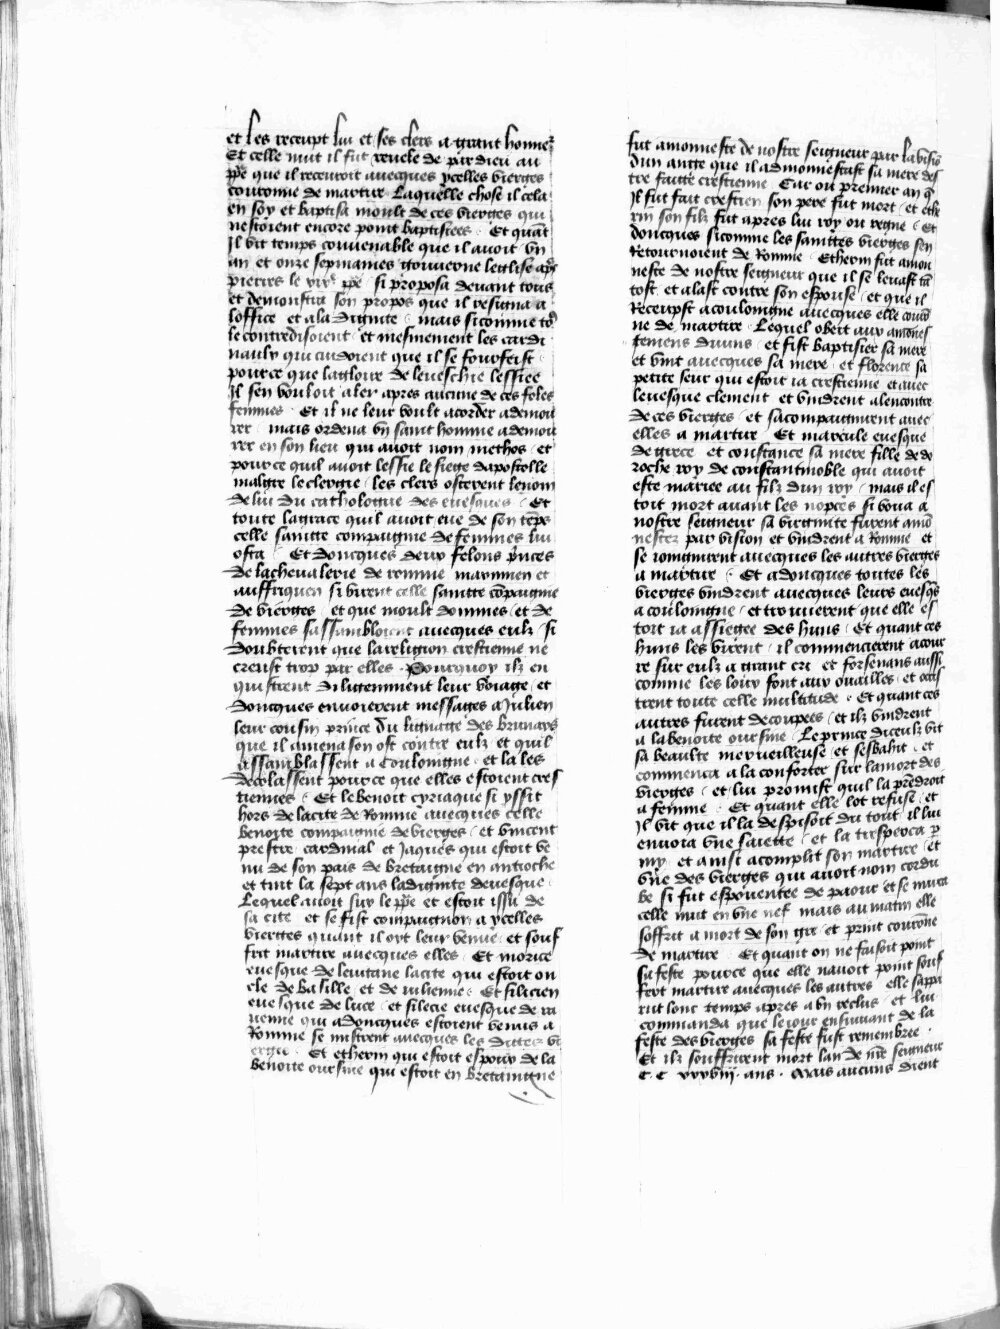 et les receupt lui et ses clers a grant honneʳ
Et celle nuit il fut revele de par dieu au
pp̃e que il recevroit avecques ycelles vierges
couronne de martire Laquelle chose il cela
en soy et baptisa moult de ces vierges qui
nestoient encore point baptisiees Et quãt
Il vit temps convenable que il avoit vn
an et onze sepmaines gouverne leglise apꝭ
pierres le pp̃e si proposa devant tous
et demonstra son propos que il resigna a
loffice et a la dignite mais si comme toꝰ
le contredisoient et mesmement les cardi
naulx qui cuidoient que il se fourfeist
pource que la gloire de leveschie lessiee
Il sen vouloit aler apres aucune de ces foles
femmes Et il ne leur voult acorder a demou
rer mais ordena vn saint homme a demou
rer en son lieu qui avoit nom methos et
pource quil avoit lessie le siege dapostolle
maligre le clergie les clers osterent le nom
de lui du cathologue des evesques Et
toute la grace quil avoit eue de son tẽps
celle sainte compaignie de femmes lui
osta Et doncques deux felons pⁱnces
de la chevalerie de romme maximien et
auffriquen si virent celle sainte cõpaignie
de vierges et que moult dommes et de
femmes sassambloient avecques eulz si
doubterent que la religion crestienne ne
creust trop par elles Pourquoy ilz en
quistrent diligemment leur voiage et
doncques envoierent messages a Julien
leur cousin prince du lignage des
que il amena son ost contre eulz et quil
assamblassent a Coulomgne et la les
decolassent pource que elles estoient cres
tiennes Et le benoit cyriaque si yssit
hors de la cite de Romme avecques celle
benoite compaignie de vierges et vincent
prestre cardinal et Jaques qui estoit ve
nu de son pais de bretaigne en antioche
et tint la sept ans la dignite devesque
Lequel avoit suy le pp̃e et estoit issu de
sa cite et se fist compaignon a ycelles
vierges quant il oyt leur venue et souf
frit martire avecques elles Et morice
evesque de levitane la cite qui estoit on
cle de babille et de iulienne Et silicien
evesque de luce et silecie evesque de ra
venne qui adoncques estoient venus a
Romme se mistrent avecques les dittes vi
erges Et etherin qui estoit espoux de la
benoite oursine qui estoit en bretaingne
fut amonneste de nostre seigneur par la visiõ
dun ange que il admonnestast sa mere des
tre faitte crestienne Car ou premier an q̃
Il fut fait crestien son pere fut mort et ethe
rin son filz fut apres lui roy ou regne Et
doncques si comme les saintes vierges sen
Retournoient de Romme Etherin fut amon
neste de nostre seigneur que il se levast tã
tost et alast contre son espouse et que il
Receupst a coulomgne avecques elle courõ
ne de martire Lequel obeit aux amones
temens divins et fist baptisier sa mere
et vint avecques sa mere et florence sa
petite seur qui estoit ia crestienne et avec
levesque clement et vindrent a lencontre
de ces vierges et sacompaignirent avec
elles a martire Et marcule evesque
de grece et constance sa mere fille de do
roche roy de constantinoble qui avoit
este mariee au filz dun roy mais il es
toit mort avant les nopces si voua a
nostre seigneur sa virginite furent amõ
nestez par vision et vindrent a Romme et
se ioingnirent avecques les autres vierges
a martire Et adoncques toutes les
vierges vindrent avecques leurs evesqꝭ
a coulomgne et trouvierent que elle es
toit ia assiegee des huns Et quant ces
huns les virent il commencierent a cour
re sur eulz a grant cri et forsenans aussi
comme les loux font aux ouailles et occis
trent toute celle multitude Et quant ces
autres furent decoupees et ilz vindrent
a la benoite oursine Le prince diceulz vit
sa beaulte merveilleuse et sesbahit et
commenca a la conforter sur la mort des
vierges et lui promist quil la prẽdroit
a femme Et quant elle lot refuse et
Il vit que il la despisoit du tout il lui
envoia vne saiette et la tresperca p̱
my et ainsi acomplit son martire et
vne des vierges qui avoit nom cordu
be si fut espoventee de paour et se muca
celle nuit en vne nef mais au matin elle
soffrit a mort de son gre et print courõne
de martire Et quant on ne faisoit point
sa feste pource que elle navoit point souf
fert martire avecques les autres elle sappa
rut lonc temps apres a vn reclus et lui
commanda que le iour ensuivant de la
feste des vierges sa feste fust remembree
Et ilz souffrirent mort lan de nr̃e seigneur
C. C xxxviij. ans. Mais aucuns dient